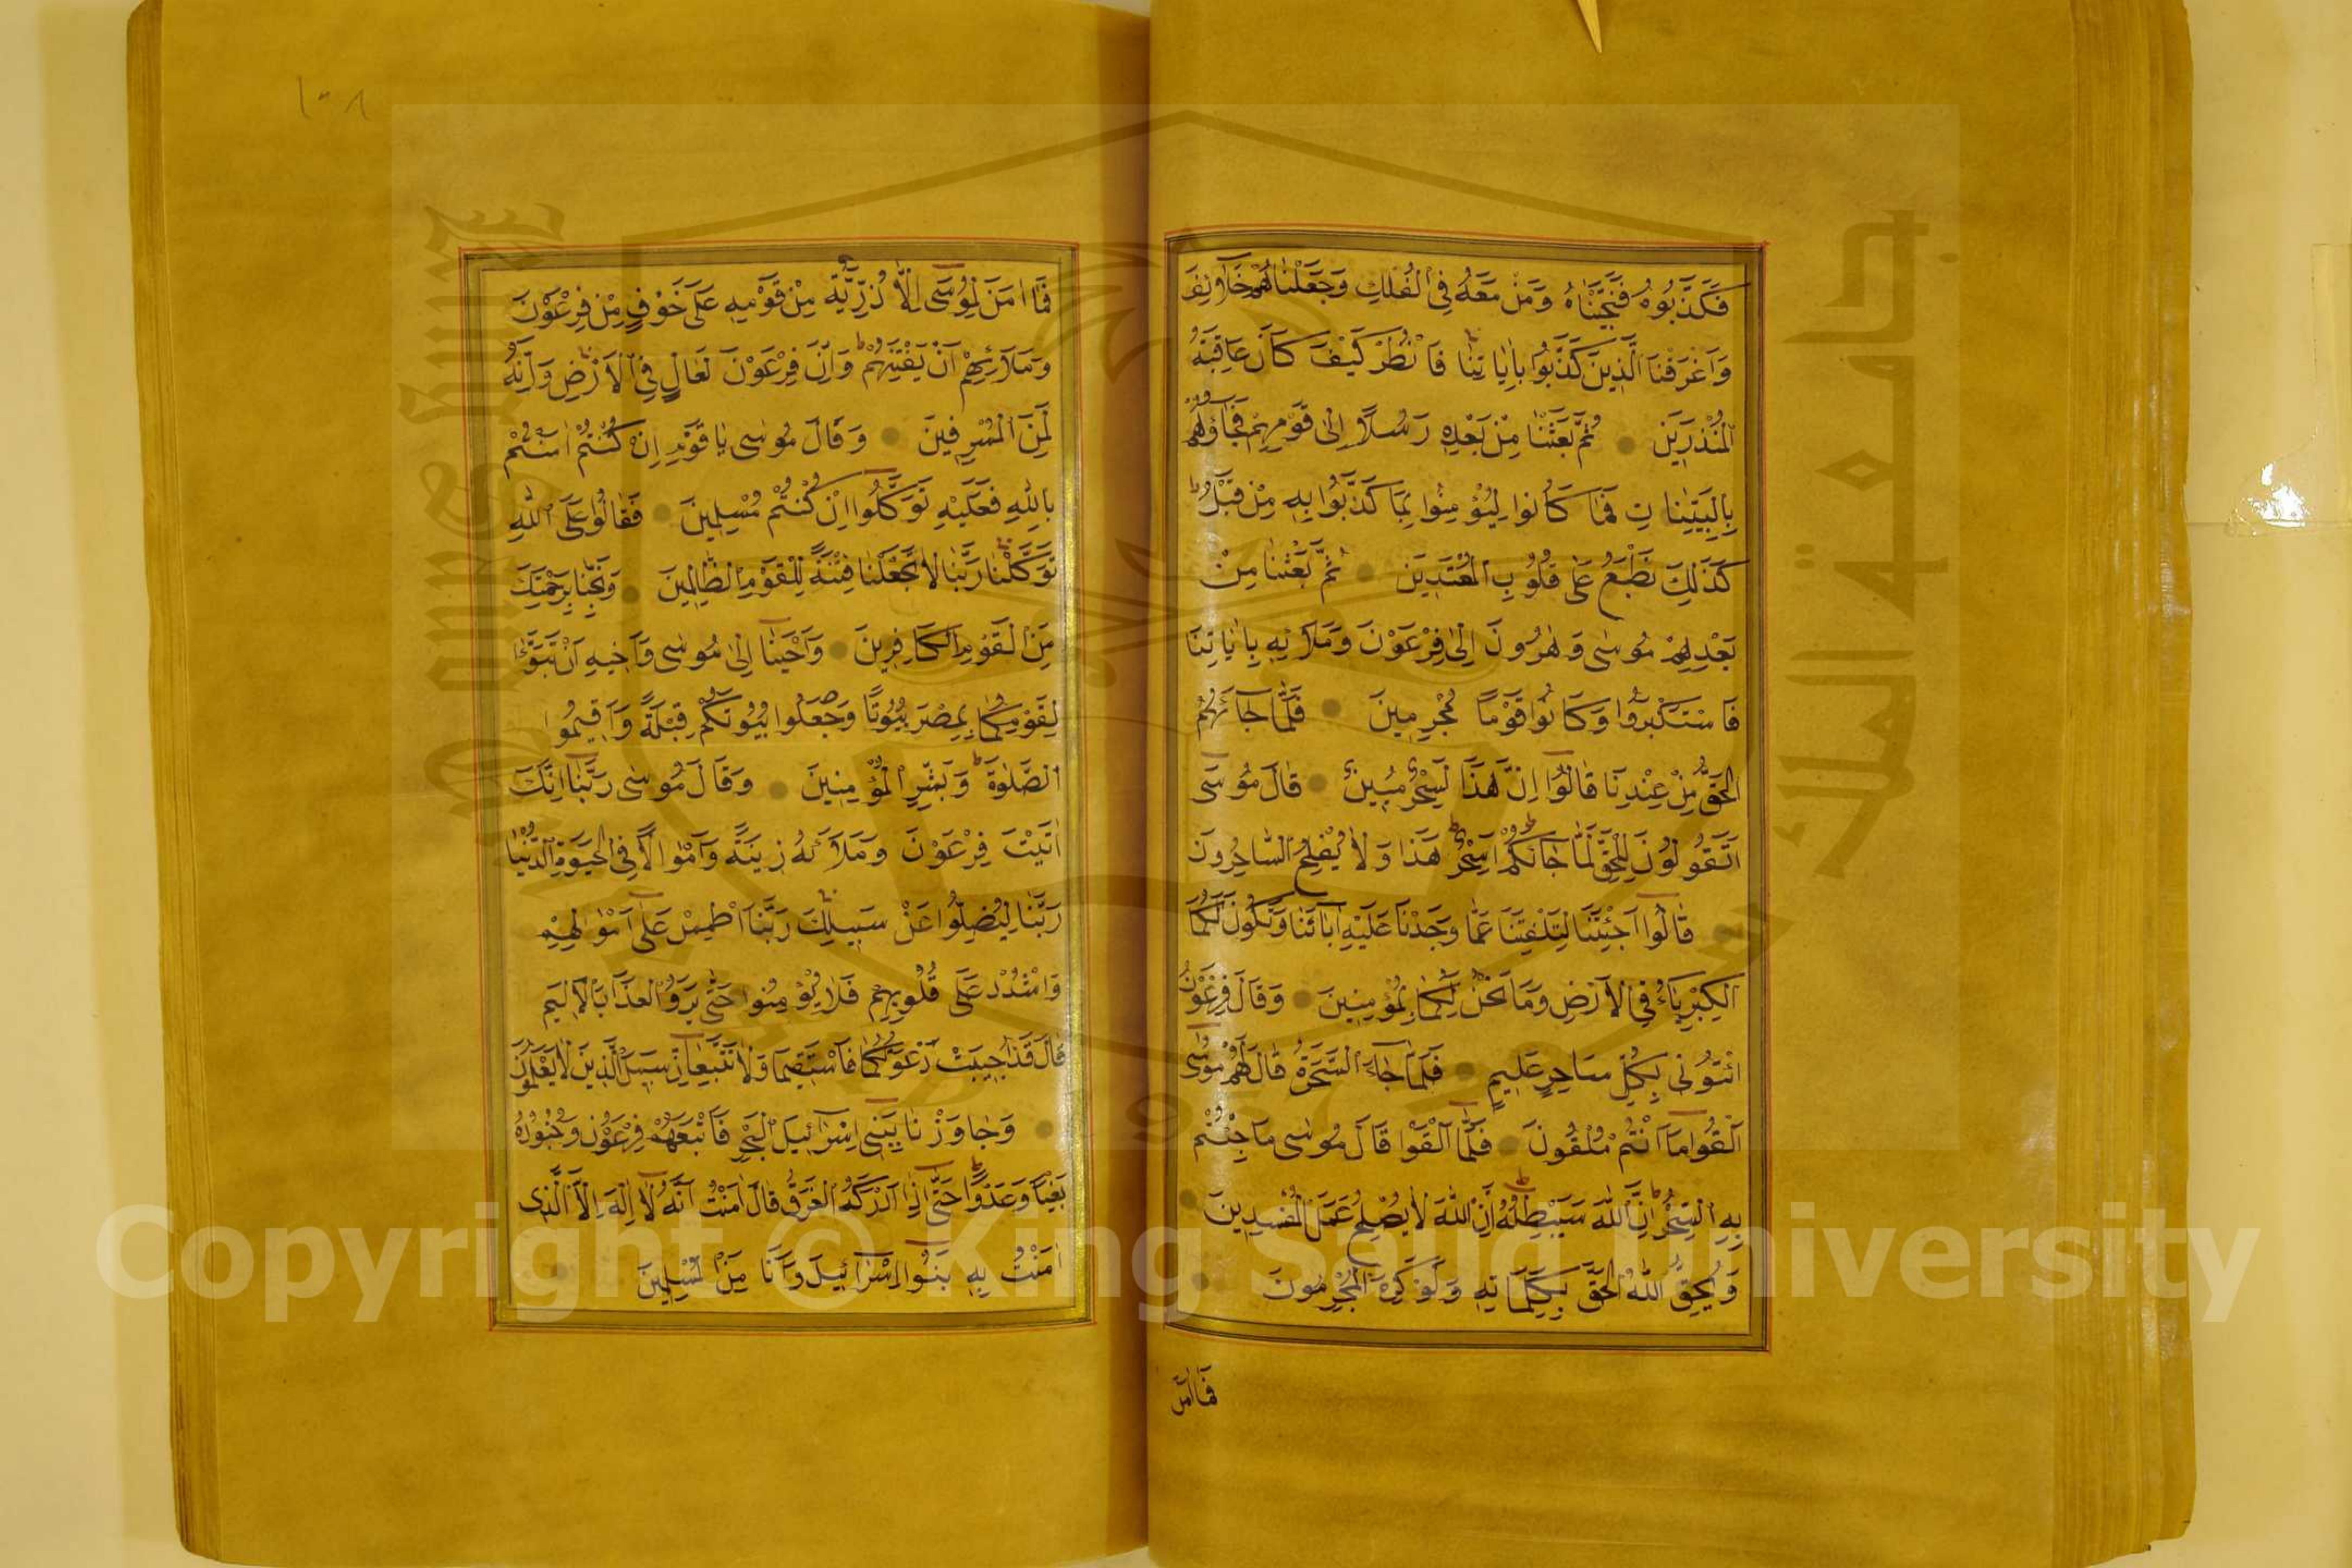 فَكَذَّبُوهُ فَنَجَّيْنَاهُ وَمَنْ مَعَهُ فِي الْفُلْكِ وَجَعَلْنَاهُمْ خَلَآئِفَ
وَاَغْرَقْنَا الَّذِينَ كَذَّبُوا بِاٰيَاتِنَا فَانْظُرْ كَيْفَ كَانَ عَاقِبَةُ
الْمُنْذَرِينَ ثُمَّ بَعَثْنَا مِنْ بَعْدِهِ رُسُلًا اِلٰى قَوْمِهِمْ فَجَآؤُهُمْ
بِالْبَيِّنَاتِ فَمَا كَانُوا لِيُؤْمِنُوا بِمَا كَذَّبُوا بِهِ مِنْ قَبْلُ
كَذٰلِكَ نَطْبَعُ عَلٰى قُلُوبِ الْمُعْتَدِينَ ثُمَّ بَعَثْنَا مِنْ
بَعْدِهِمْ مُوسٰى وَهٰرُونَ اِلٰى فِرْعَوْنَ وَمَلَائِهِ بِاٰيَاتِنَا
فَاسْتَكْبَرُوا وَكَانُوا قَوْمًا مُجْرِمِينَ فَلَمَّا جَآءَهُمُ
الْحَقُّ مِنْ عِنْدِنَا قَالُوٓا اِنَّ هٰذَا لَسِحْرٌ مُبِينٌ قَالَ مُوسٰٓى
اَتَقُولُونَ لِلْحَقِّ لَمَّا جَآءَكُمْ اَسِحْرٌ هٰذَا وَلَا يُفْلِحُ السَّاحِرُونَ
قَالُوٓا اَجِئْتَنَا لِتَلْفِتَنَا عَمَّا وَجَدْنَا عَلَيْهِ اٰبَآءَنَا وَتَكُونَ لَكُمَا
الْكِبْرِيَآءُ فِي الْاَرْضِ وَمَا نَحْنُ لَكُمَا بِمُؤْمِنِينَ وَقَالَ فِرْعَوْنُ
ائْتُونِي بِكُلِّ سَاحِرٍ عَلِيمٍ فَلَمَّا جَآءَ السَّحَرَةُ قَالَ لَهُمْ مُوسٰٓى
اَلْقُوا مَآ اَنْتُمْ مُلْقُونَ فَلَمَّآ اَلْقَوْا قَالَ مُوسٰى مَا جِئْتُمْ
بِهِ السِّحْرُ اِنَّ اللّٰهَ سَيُبْطِلُهُ اِنَّ اللّٰهَ لَا يُصْلِحُ عَمَلَ الْمُفْسِدِينَ
وَيُحِقُّ اللّٰهُ الْحَقَّ بِكَلِمَاتِهِ وَلَوْ كَرِهَ الْمُجْرِمُونَ
فَمَا اٰمَنَ
١٠٨
فَمَآ اٰمَنَ لِمُوسٰٓى اِلَّا ذُرِّيَّةٌ مِنْ قَوْمِهِ عَلٰى خَوْفٍ مِنْ فِرْعَوْنَ
وَمَلَائِهِمْ اَنْ يَفْتِنَهُمْ وَاِنَّ فِرْعَوْنَ لَعَالٍ فِي الْاَرْضِ وَاِنَّهُ
لَمِنَ الْمُسْرِفِينَ وَقَالَ مُوسٰى يَا قَوْمِ اِنْ كُنْتُمْ اٰمَنْتُمْ
بِاللّٰهِ فَعَلَيْهِ تَوَكَّلُوٓا اِنْ كُنْتُمْ مُسْلِمِينَ فَقَالُوا عَلَى اللّٰهِ
تَوَكَّلْنَا رَبَّنَا لَا تَجْعَلْنَا فِتْنَةً لِلْقَوْمِ الظَّالِمِينَ وَنَجِّنَا بِرَحْمَتِكَ
مِنَ الْقَوْمِ الْكَافِرِينَ وَاَوْحَيْنَآ اِلٰى مُوسٰى وَاَخِيهِ اَنْ تَبَوَّءَا
لِقَوْمِكُمَا بِمِصْرَ بُيُوتًا وَجْعَلُوا بُيُوتَكُمْ قِبْلَةً وَاَقِيمُوا
الصَّلٰوةَ وَبَشِّرِ الْمُؤْمِنِينَ وَقَالَ مُوسٰى رَبَّنَآ اِنَّكَ
اٰتَيْتَ فِرْعَوْنَ وَمَلَاَئَهُ زِينَةً وَاَمْوَالًا فِي الْحَيٰوةِ الدُّنْيَا
رَبَّنَا لِيُضِلُّوا عَنْ سَبِيلِكَ رَبَّنَا اطْمِسْ عَلٰٓى اَمْوَالِهِمْ
وَاشْدُدْ عَلٰى قُلُوبِهِمْ فَلَا يُؤْمِنُوا حَتّٰى يَرَوُا الْعَذَابَ الْاَلِيمَ
قَالَ قَدْ اُجِيبَتْ دَعْوَتُكُمَا فَاسْتَقِيمَا وَلَا تَتَّبِعَآنِّ سَبِيلَ الَّذِينَ لَا يَعْلَمُونَ
وَجَاوَزْنَا بِبَنِٓى اِسْرَآئِيلَ الْبَحْرَ فَاَتْبَعَهُمْ فِرْعَوْنُ وَجُنُودُهُ
بَغْيًا وَعَدْوًا حَتّٰٓى اِذَآ اَدْرَكَهُ الْغَرَقُ قَالَ اٰمَنْتُ اَنَّهُ لَآ اِلٰهَ اِلَّا الَّذِى
اٰمَنَتْ بِهِ بَنُوٓا اِسْرَآئِيلَ وَاَنَا مِنَ الْمُسْلِمِينَ
جامعة الملك سعود
King Saud University
Copyright © King Saud University